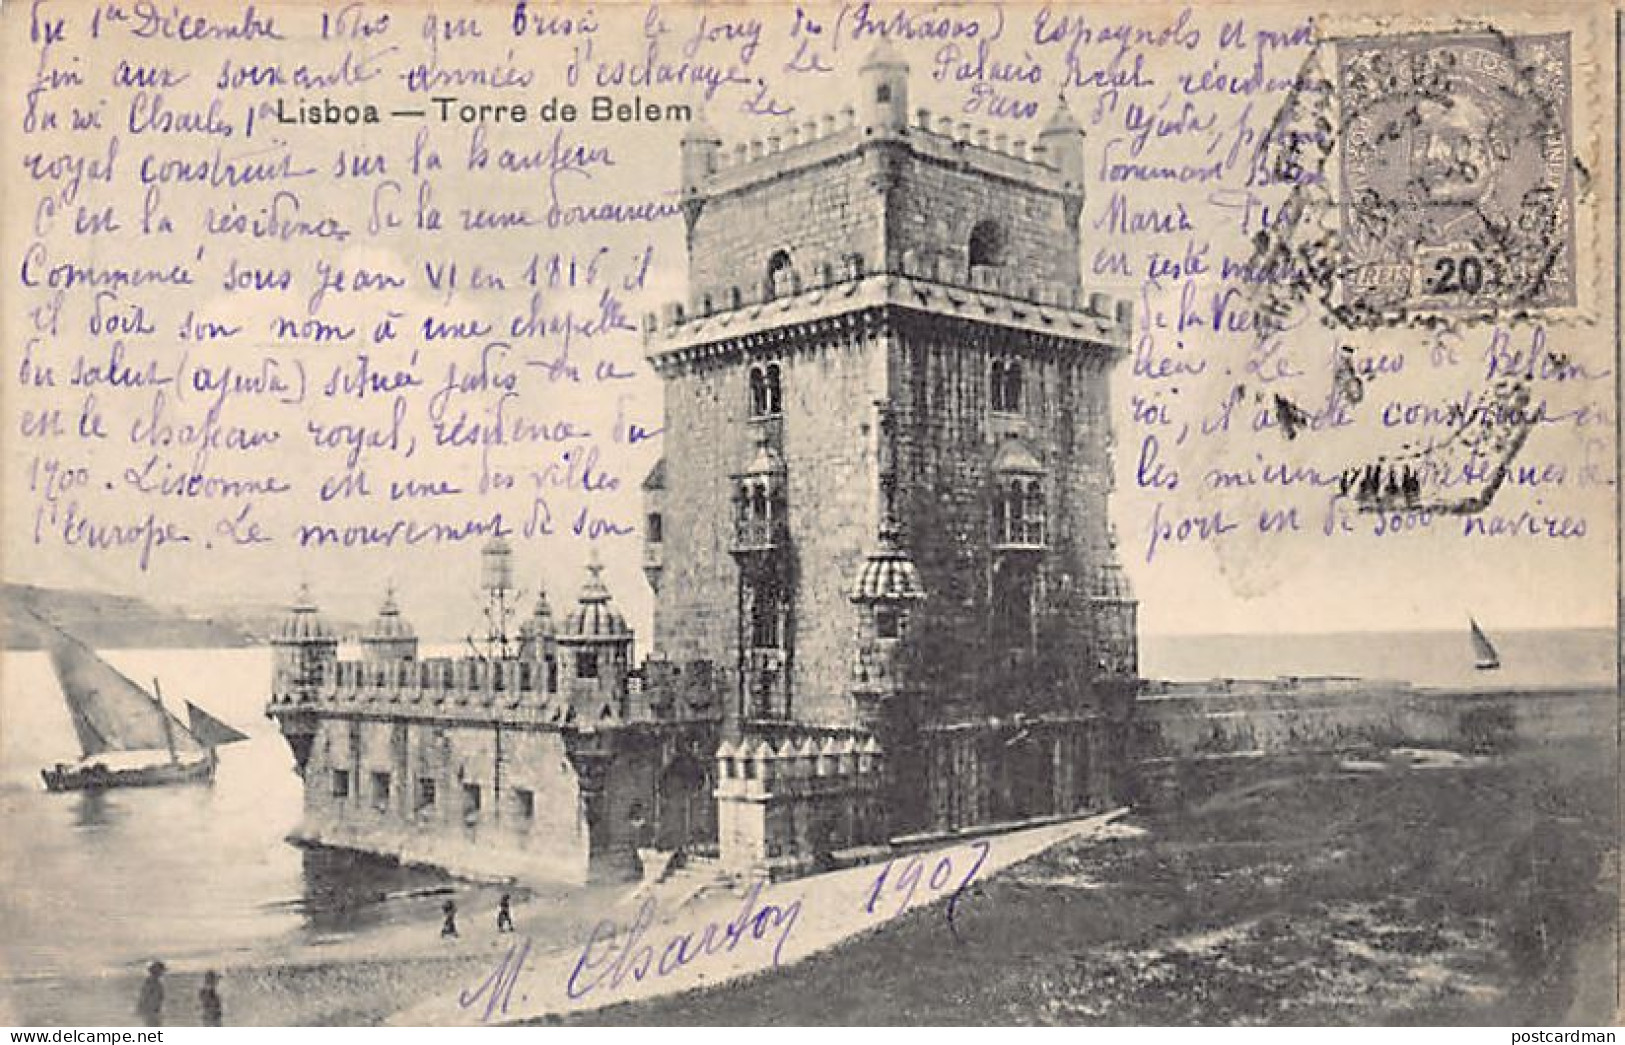 du 1er Décembre 1640 qui brisa le joug des (Intrusos) Espagnols et mit
fin aux soixante années d'esclavage. Le Palacio real, résidence
du roi Charles 1er Le Paço d'Ajuda, palais
Lisboa — Torre de Belem
royal construit sur la hauteur dominant Belem
C'est la résidence de la reine douairière Maria Pia.
Commencé sous Jean VI en 1816, il en resté
il doit son nom à une chapelle de la Vierge
du salut (ajuda) située jadis en ce lieu. Le Paço de Belem
est le chateau royal, résidence du roi, il a été construit en
1700. Lisbonne est une des villes les mieux entretenues de
l'Europe. Le mouvement de son port est de 5000 navires
REIS 20
M. Charton 1907
postcardman